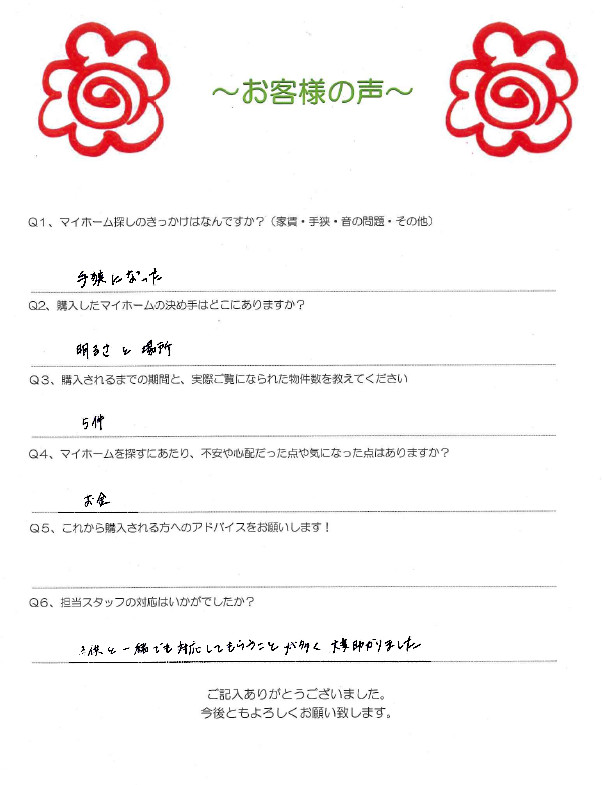 ～お客様の声～
Q1、マイホーム探しのきっかけはなんですか？（家賃・手狭・音の問題・その他）
手狭になった
Q2、購入したマイホームの決め手はどこにありますか？
明るさと場所
Q3、購入されるまでの期間と、実際ご覧になられた物件数を教えてください
5件
Q4、マイホームを探すにあたり、不安や心配だった点や気になった点はありますか？
お金
Q5、これから購入される方へのアドバイスをお願いします！
Q6、担当スタッフの対応はいかがでしたか？
子供と一緒でも対応してもらうことが多く大変助かりました
ご記入ありがとうございました。
今後ともよろしくお願い致します。